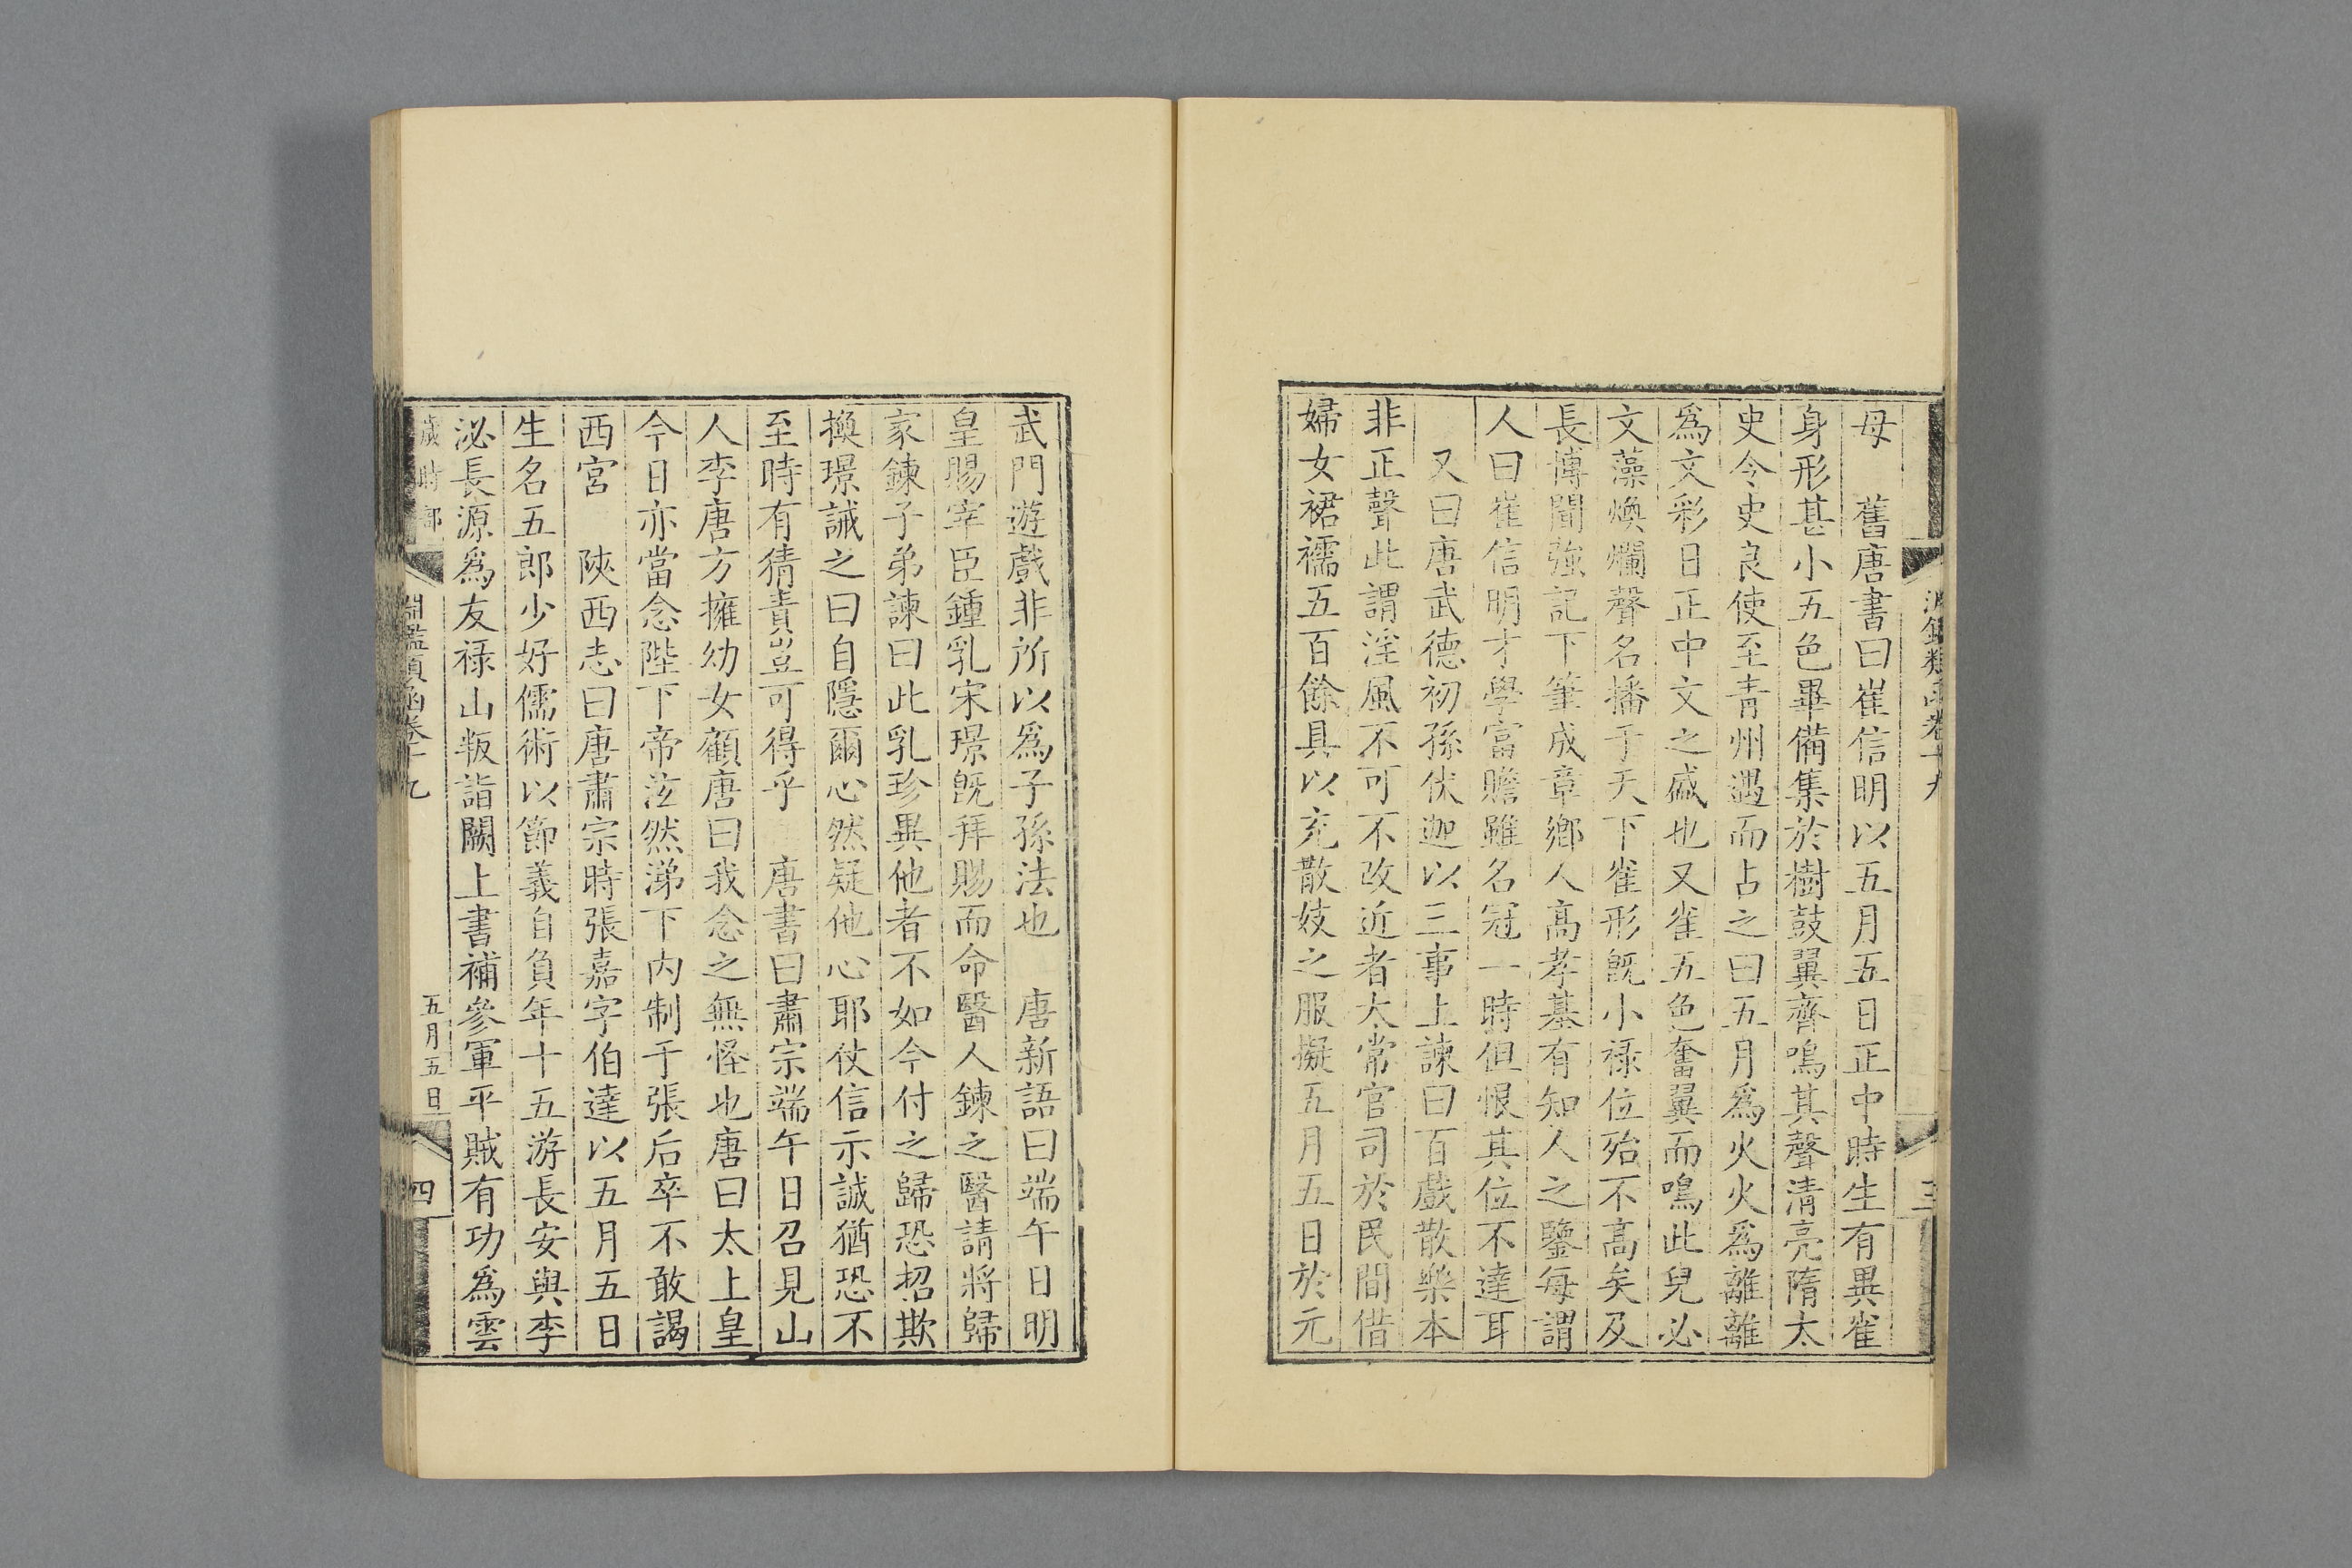 淵鑑類函卷十九
三
母　舊唐書曰崔信明以五月五日正中時生有異雀
身形甚小五色畢備集於樹鼓翼齊鳴其聲清亮隋太
史令史良使至青州遇而占之曰五月爲火火爲離離
爲文彩日正中文之盛也又雀五色奮翼而鳴此兒必
文藻煥爛聲名播于天下雀形旣小禄位殆不髙矣及
長博聞强記下筆成章鄉人髙孝基有知人之鑒每謂
人曰崔信明才學富贍雖名冠一時但恨其位不達耳
又曰唐武德初孫伏迦以三事上諫曰百戲散樂本
非正聲此謂淫風不可不改近者太常官司於民間借
婦女裙襦五百餘具以充散妓之服擬五月五日於元
武門遊戲非所以爲子孫法也　唐新語曰端午日明
皇賜宰臣鍾乳宋璟旣拜賜而命醫人鍊之醫請將歸
家鍊子弟諫曰此乳珍異他者不如今付之歸恐招欺
換璟誡之曰自隱爾心然疑他心耶仗信示誠猶恐不
至時有猜責豈可得乎　唐書曰肅宗端午日召見山
人李唐方擁幼女顧唐曰我念之無怪也唐曰太上皇
今日亦當念陛下帝泫然涕下内制于張后卒不敢謁
西宮　陜西志曰唐肅宗時張嘉字伯達以五月五日
生名五郎少好儒術以節義自負年十五游長安與李
泌長源爲友禄山叛詣闕上書補參軍平賊有功爲雲
歲時部
淵鑑類函卷十九
五月五日
四